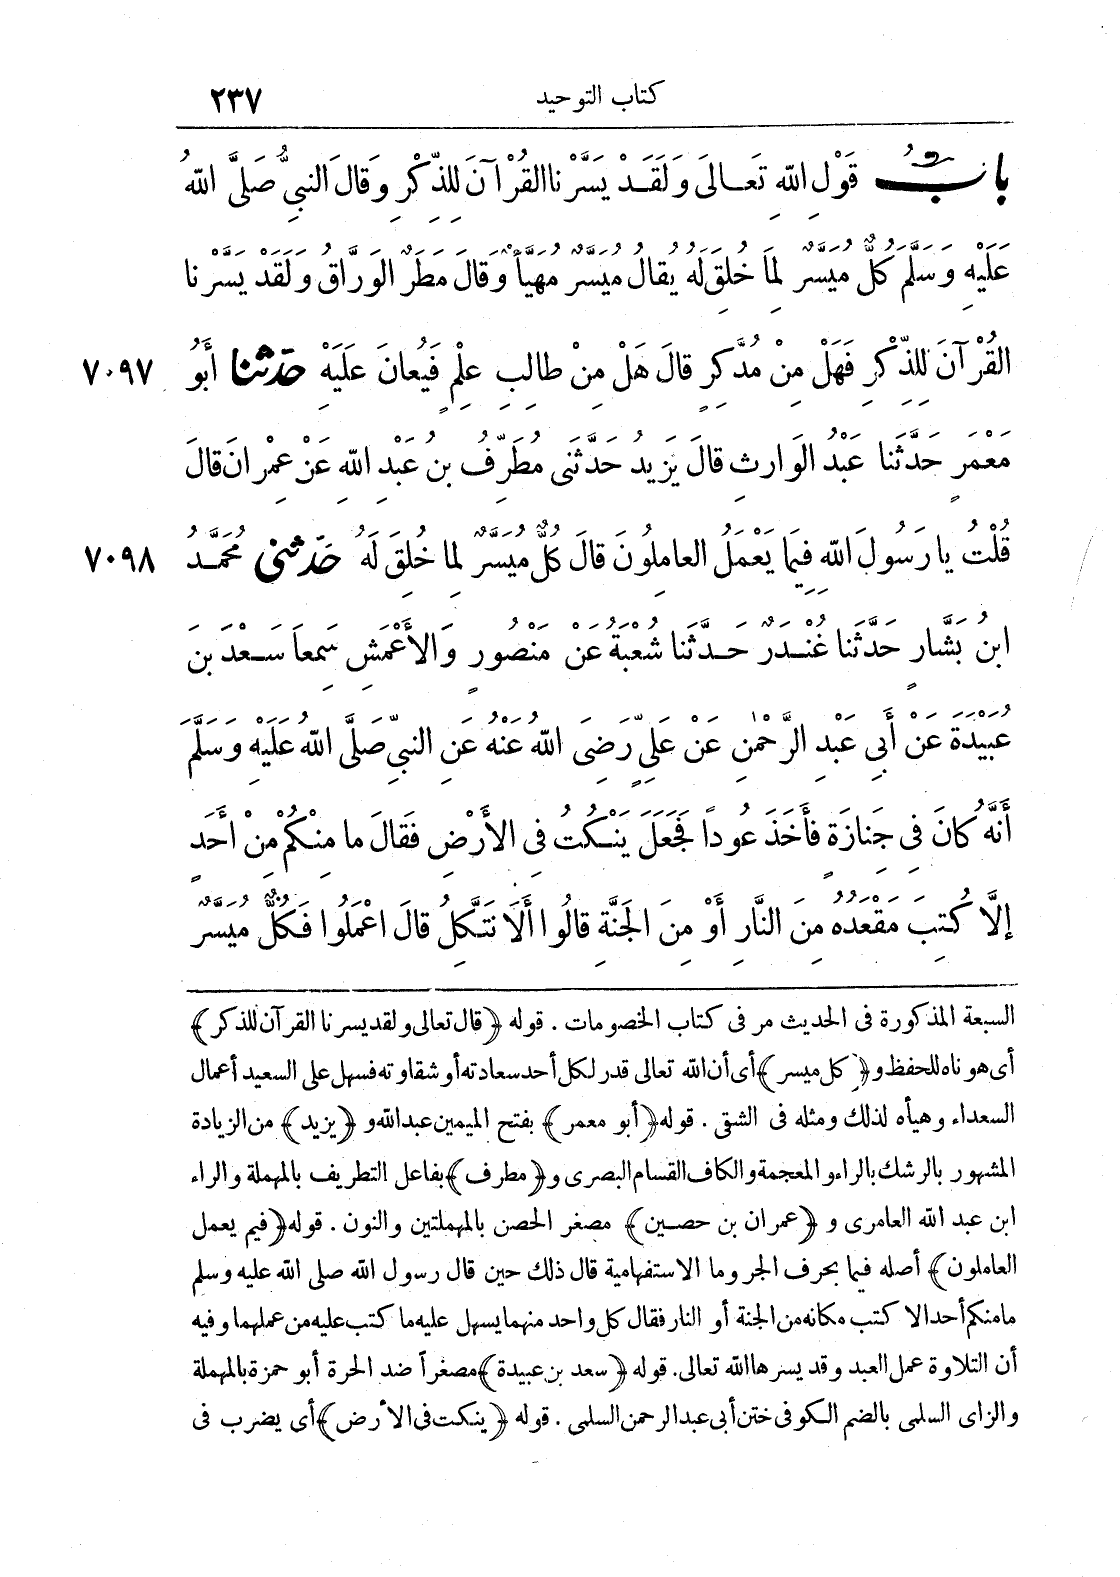 كتاب التوحيد ٢٣٧
بابُ قَوْلِ اللهِ تَعَالىَ وَلَقَدْ يَسَّرْنا القُرْآنَ لِلذِّكْرِ وَقالَ النبىُّ صَلَّى اللهُ
عَلَيْهِ وَسَلَّمَ كُلٌّ مُيَسَّرٌ لِمَا خُلِقَ لَهُ يُقالُ مُيَسَّرٌ مُهَيَّأٌ وَقالَ مَطَرٌ الوَرَّاقُ وَلَقَدْ يَسَّرْنا
القُرْآنَ لِلذِّكْرِ فَهَلْ مِنْ مُدَّكِرٍ قالَ هَلْ مِنْ طالِبِ عِلْمٍ فَيُعانَ عَلَيْهِ حَدَّثَنا أَبُو ٧٠٩٧
مَعْمَرٍ حَدَّثَنا عَبْدُ الوَارِثِ قالَ يَزِيدُ حَدَّثَنِى مُطَرِّفُ بن عَبْدِ اللهِ عَنْ عِمْرانَ قالَ
قُلْتُ يا رَسُولَ اللهِ فِيمَا يَعْمَلُ العامِلُونَ قالَ كُلٌّ مُيَسَّرٌ لِما خُلِقَ لَهُ حَدَّثَنِى مُحَمَّدُ ٧٠٩٨
ابنُ بَشَّارٍ حَدَّثَنا غُنْدَرٌ حَدَّثَنا شُعْبَةُ عَنْ مَنْصُورٍ وَالأَعْمَشِ سَمِعَا سَعْدَ بنَ
عُبَيْدَةَ عَنْ أَبِى عَبْدِ الرَّحْمٰنِ عَنْ عَلِىٍّ رَضِىَ اللهُ عَنْهُ عَنِ النبىِّ صَلَّى اللهُ عَلَيْهِ وَسَلَّمَ
أَنَّهُ كانَ فِى جَنازَةٍ فأَخَذَ عُوداً فَجَعَلَ يَنْكُتُ فِى الأَرْضِ فَقالَ ما مِنْكُمْ مِنْ أَحَدٍ
إلَّا كُتِبَ مَقْعَدُهُ مِنَ النَّارِ أَوْ مِنَ الجَنَّةِ قالُوا أَلَا نَتَّكِلُ قالَ اعْمَلُوا فَكُلٌّ مُيَسَّرٌ
السبعة المذكورة فى الحديث مر فى كتاب الخصومات . قوله ﴿قال تعالى ولقد يسرنا القرآن للذكر﴾
أى هوناه للحفظ و﴿كل ميسر﴾ أى أن الله تعالى قدر لكل أحد سعادته أو شقاوته فسهل على السعيد أعمال
السعداء وهيأه لذلك ومثله فى الشقى . قوله ﴿أبو معمر﴾ بفتح الميمين عبد الله و﴿يزيد﴾ من الزيادة
المشهور بالرشك بالراء والمعجمة والكاف القسام البصرى و﴿مطرف﴾ بفاعل التطريف بالمهملة والراء
ابن عبد الله العامرى و ﴿عمران بن حصين﴾ مصغر الحصن بالمهملتين والنون . قوله ﴿فيم يعمل
العاملون﴾ أصله فيما بحرف الجر وما الاستفهامية قال ذلك حين قال رسول الله صلى الله عليه وسلم
ما منكم أحد الا كتب مكانه من الجنة أو النار فقال كل واحد منهما يسهل عليه ما كتب عليه من عملهما وفيه
أن التلاوة عمل العبد وقد يسرها الله تعالى. قوله ﴿سعد بن عبيدة﴾ مصغراً ضد الحرة أبو حمزة بالمهملة
والزاى السلمى بالضم الكوفى ختن أبى عبد الرحمن السلمى . قوله ﴿ينكت فى الأرض﴾ أى يضرب فى